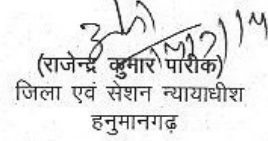 (राजेन्द्र कुमार पारीक)
जिला एवं सेशन न्यायाधीश
हनुमानगढ़